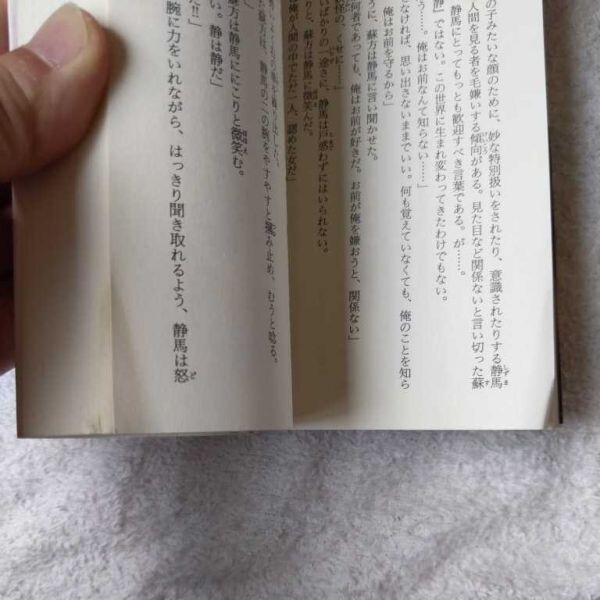 の子みたいな顔のために、妙な特別扱いをされたり、意識されたりする静馬
人間を見る者を毛嫌いする傾向がある。見た目など関係ないと言い切った蘇
静馬にとってもっとも歓迎すべき言葉である。が……。
静』ではない。この世界に生まれ変わってきたわけでもない。
う……。俺はお前なんて知らない……」
となければ、思い出さないままでいい。何も覚えていなくても、俺のことを知ら
俺はお前を守るから」
うに、蘇方は静馬に言い聞かせた。
何者であっても、俺はお前が好きだ。お前が俺を嫌おうと、関係ない」
怪の、くせに……」
いばかりの一途さに、静馬は戸惑わずにはいられない。
りと、蘇方は静馬に微笑んだ。
俺が、闇の中でただ一人、認めた女だ」
蘇方は、静馬の二の腕をやすやすと掴み止め、むうと唸る。
蘇方は静馬ににこりと微笑む。
い。静は静だ」
だ!!」
腕に力をいれながら、はっきり聞き取れるよう、静馬は怒